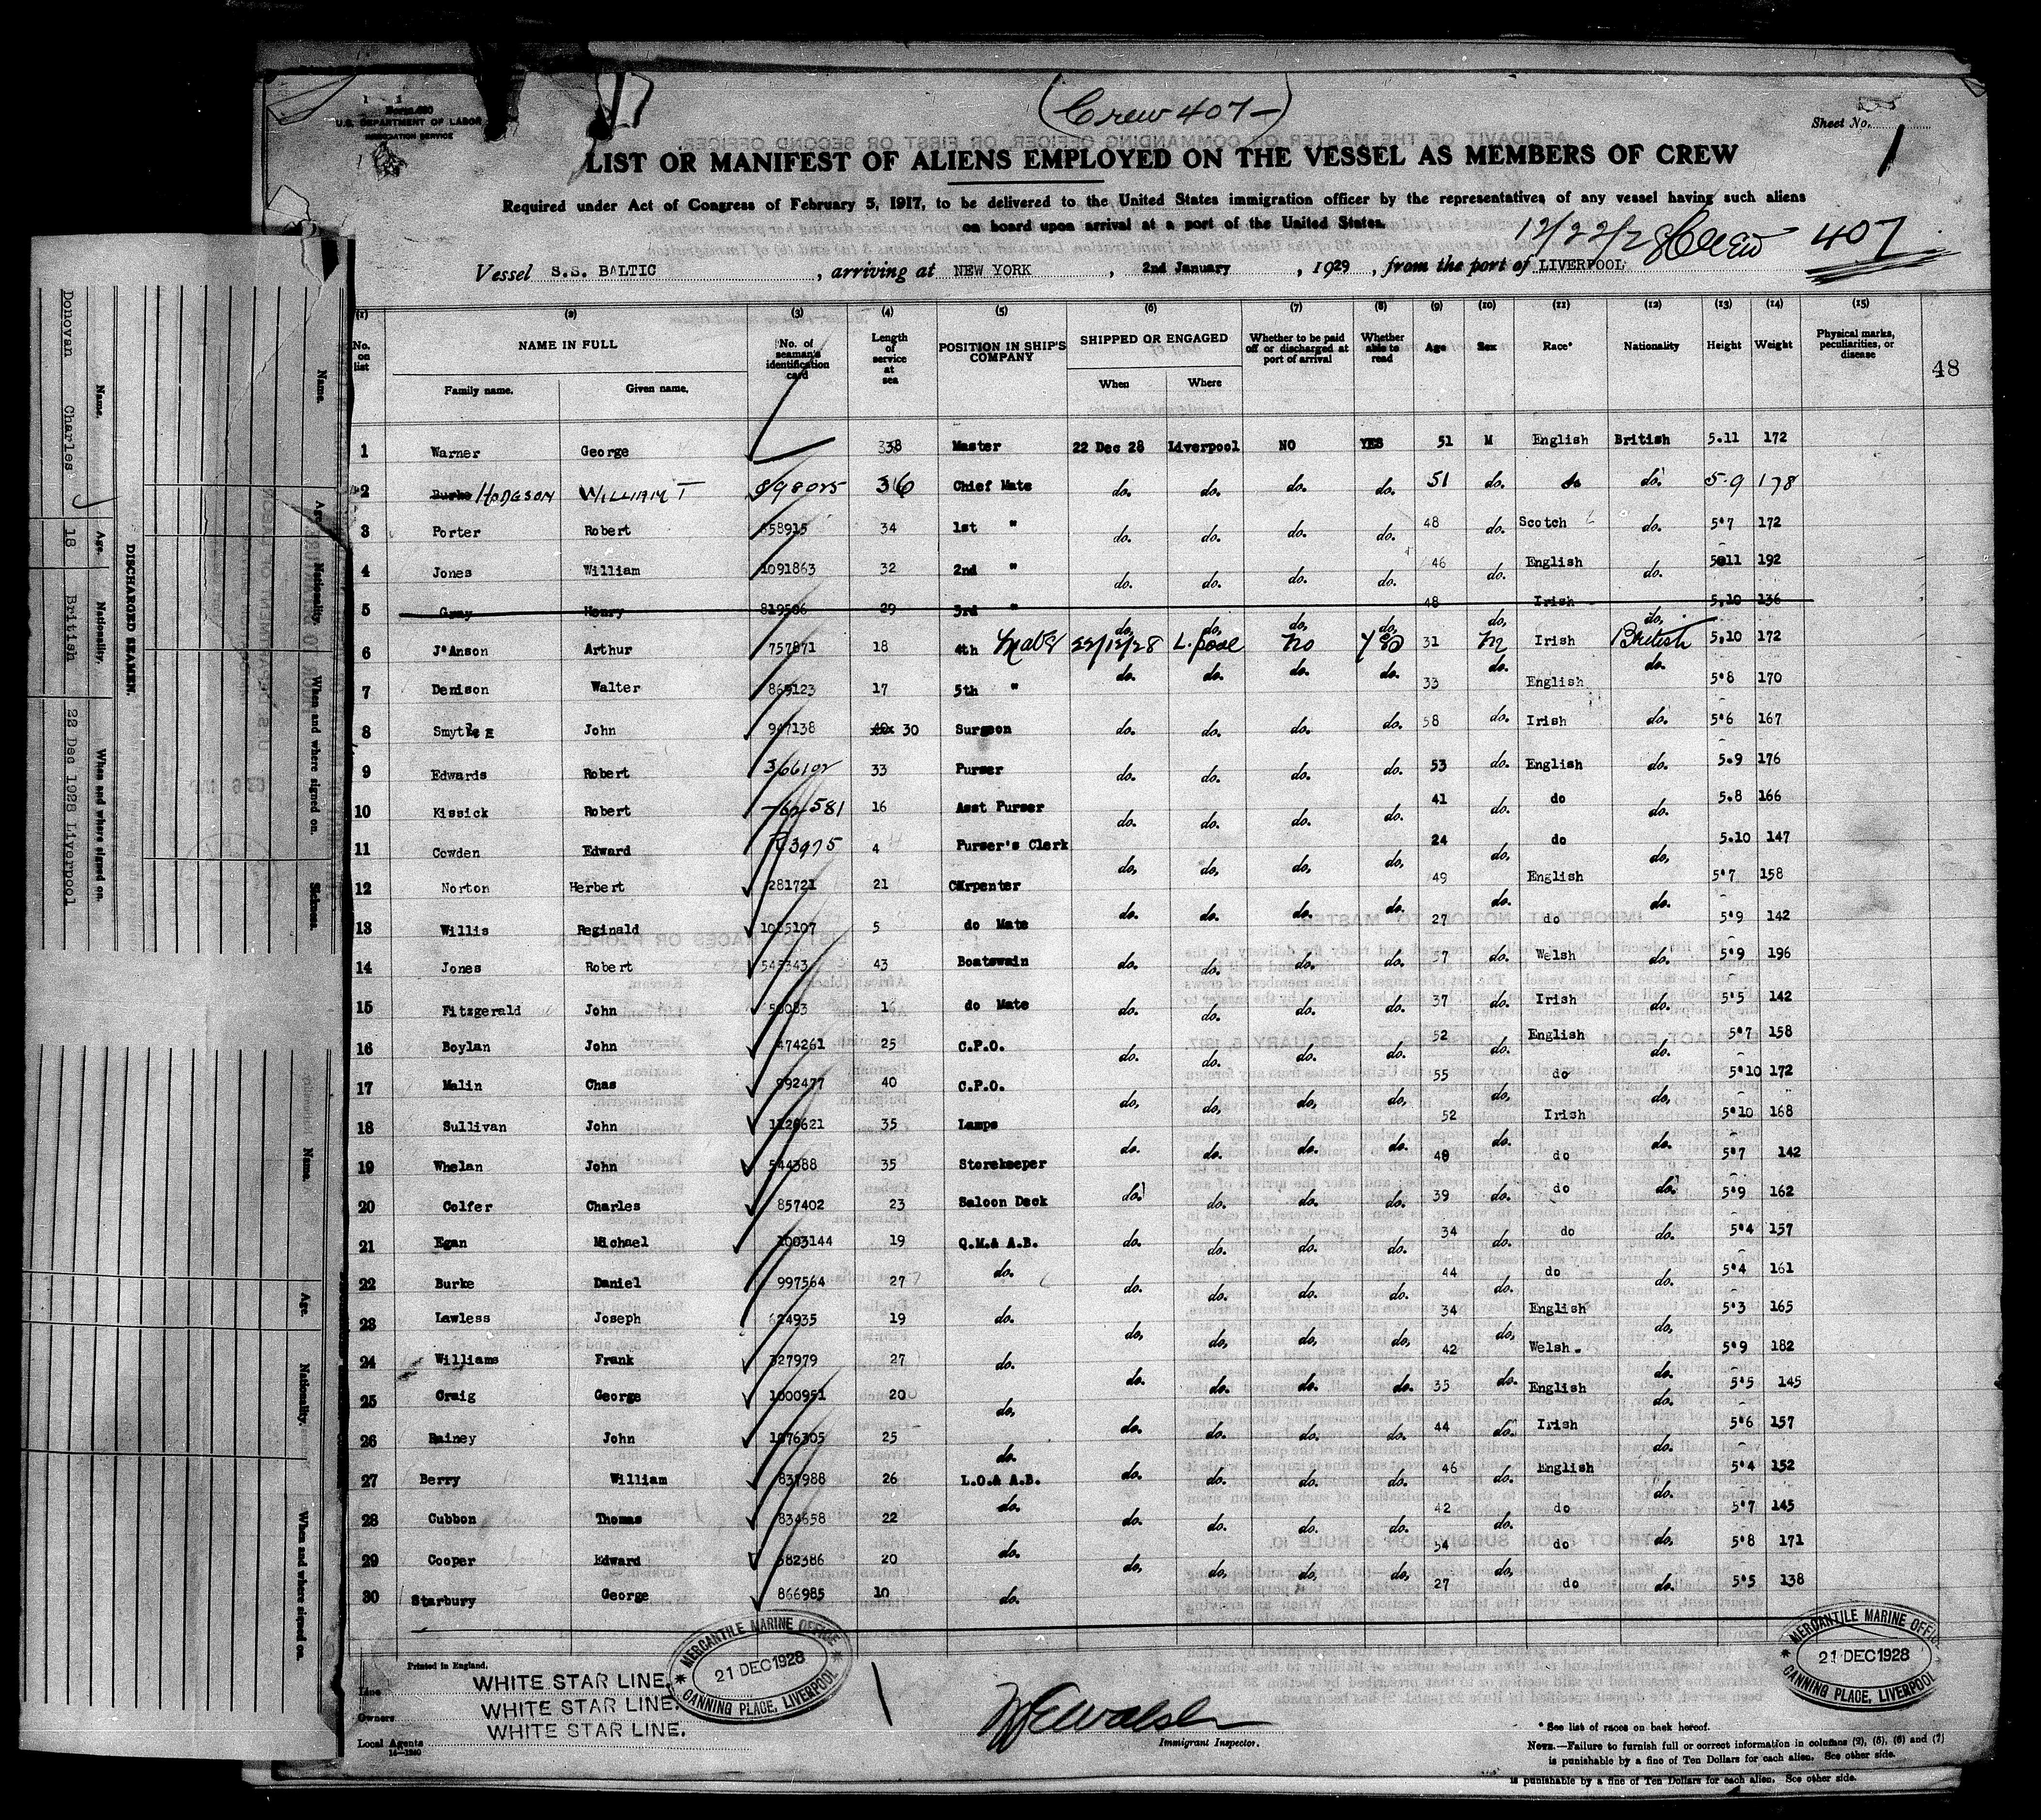 (Crew 407-)
U.S. DEPARTMENT OF LABOR
IMMIGRATION SERVICE
Sheet No. 1
LIST OR MANIFEST OF ALIENS EMPLOYED ON THE VESSEL AS MEMBERS OF CREW
Required under Act of Congress of February 5, 1917, to be delivered to the United States immigration officer by the representatives of any vessel having such aliens
on board upon arrival at a port of the United States.
12/22/28 Crew 407
Vessel S.S. BALTIC, arriving at NEW YORK, 2nd January, 1929, from the port of LIVERPOOL
(1) (2) (3) (4) (5) (6) (7) (8) (9) (10) (11) (12) (13) (14) (15)
No. on list NAME IN FULL Family name. Given name. No. of seaman's identification card Length of service at sea POSITION IN SHIP'S COMPANY SHIPPED OR ENGAGED When Where Whether to be paid off or discharged at port of arrival Whether able to read Age Sex Race* Nationality Height Weight Physical marks, peculiarities, or disease
48
1 Warner George 338 Master 22 Dec 28 Liverpool NO YES 51 M English British 5.11 172
2 Burke HODGSON WILLIAM T 898025 36 Chief Mate do. do. do. do. 51 do. do. 5.9 178
3 Porter Robert 458915 34 1st " do. do. do. do. 48 do. Scotch do. 5'7 172
4 Jones William 1091863 32 2nd " do. do. do. do. 46 do. English do. 5.11 192
5 Gray Henry 819506 29 3rd " do, do, do, do, 48 do, Irish do, 5.10 136
6 J'Anson Arthur 757871 18 4th Mate 22/12/28 L.pool No Yes 31 M Irish British 5.10 172
7 Denison Walter 869123 17 5th " do. do. do. do. 33 do. English do. 5'8 170
8 Smythe John 947138 30 Surgeon do. do. do. do. 58 do. Irish do. 5'6 167
9 Edwards Robert 366192 33 Purser do. do. do. do. 53 do. English do. 5.9 176
10 Kissick Robert 581 16 Asst Purser do. do. do. do. 41 do. do do. 5.8 166
11 Cowden Edward 3975 4 Purser's Clerk do, do, do, do, 24 do, do do, 5.10 147
12 Norton Herbert 281721 21 Carpenter do. do. do. do. 49 do. English do. 5'7 158
13 Willis Reginald 1085107 5 do Mate 27 do 5'9 142
14 Jones Robert 545343 43 Boatswain do. do. do. do. 57 do. Welsh do. 5'9 196
15 Fitzgerald John 50083 16 do Mate do. do. do. do. 37 do. Irish do. 5'5 142
16 Boylan John 474261 25 C.P.O. do. do. do. do. 52 do. English do. 5'7 158
17 Malin Chas 992477 40 C.P.O. do, do, do, do, 55 do, do do, 5'10 172
18 Sullivan John 1120621 35 Lamps do. do. do. do. 52 do. Irish do. 5'10 168
19 Whelan John 544388 35 Storekeeper 49 do 5'7 142
20 Colfer Charles 857402 23 Saloon Deck do. do. do. do. 39 do. do do. 5'9 162
21 Egan Michael 1003144 19 Q.M.& A.B. do. do. do. do. 34 do. do do. 5'4 157
22 Burke Daniel 997564 27 do. do. do. do. do. 44 do. do do. 5'4 161
23 Lawless Joseph 624935 19 do. do, do, do, do, 34 do, English do, 5'3 165
24 Williams Frank 327979 27 do. do. do. do. do. 42 do. Welsh do. 5'9 182
25 Craig George 1000951 20 do, 35 English do. 5'5 145
26 Rainey John 1076305 25 do. do. do. do. do. 44 do. Irish do. 5'6 157
27 Berry William 837988 26 L.O.& A.B. do. do. do. do. 46 do. English do. 5'4 152
28 Cubbon Thomas 834658 22 do. do. do. do. do. 42 do. do 5'7 145
29 Cooper Edward 582386 20 do. do, do, do, do, 54 do, do do, 5'8 171
30 Starbury George 866985 10 do. 27 do do. 5'5 138
Printed in England.
Line WHITE STAR LINE.
Owners WHITE STAR LINE.
Local Agents WHITE STAR LINE.
14-1240
MERCANTILE MARINE OFFICE
21 DEC 1928
CANNING PLACE, LIVERPOOL
Immigrant Inspector.
MERCANTILE MARINE OFFICE
21 DEC 1928
CANNING PLACE, LIVERPOOL
* See list of races on back hereof.
NOTE.—Failure to furnish full or correct information in columns (2), (5), (6) and (7)
is punishable by a fine of Ten Dollars for each alien. See other side.
is punishable by a fine of Ten Dollars for each alien. See other side.
DISCHARGED SEAMEN.
Name. Age. Nationality. When and where signed on.
Donovan Charles 18 British 22 Dec 1928 Liverpool
Name. Age. Nationality. When and where signed on. Sickness.
Name. Age. Nationality. When and where signed on.